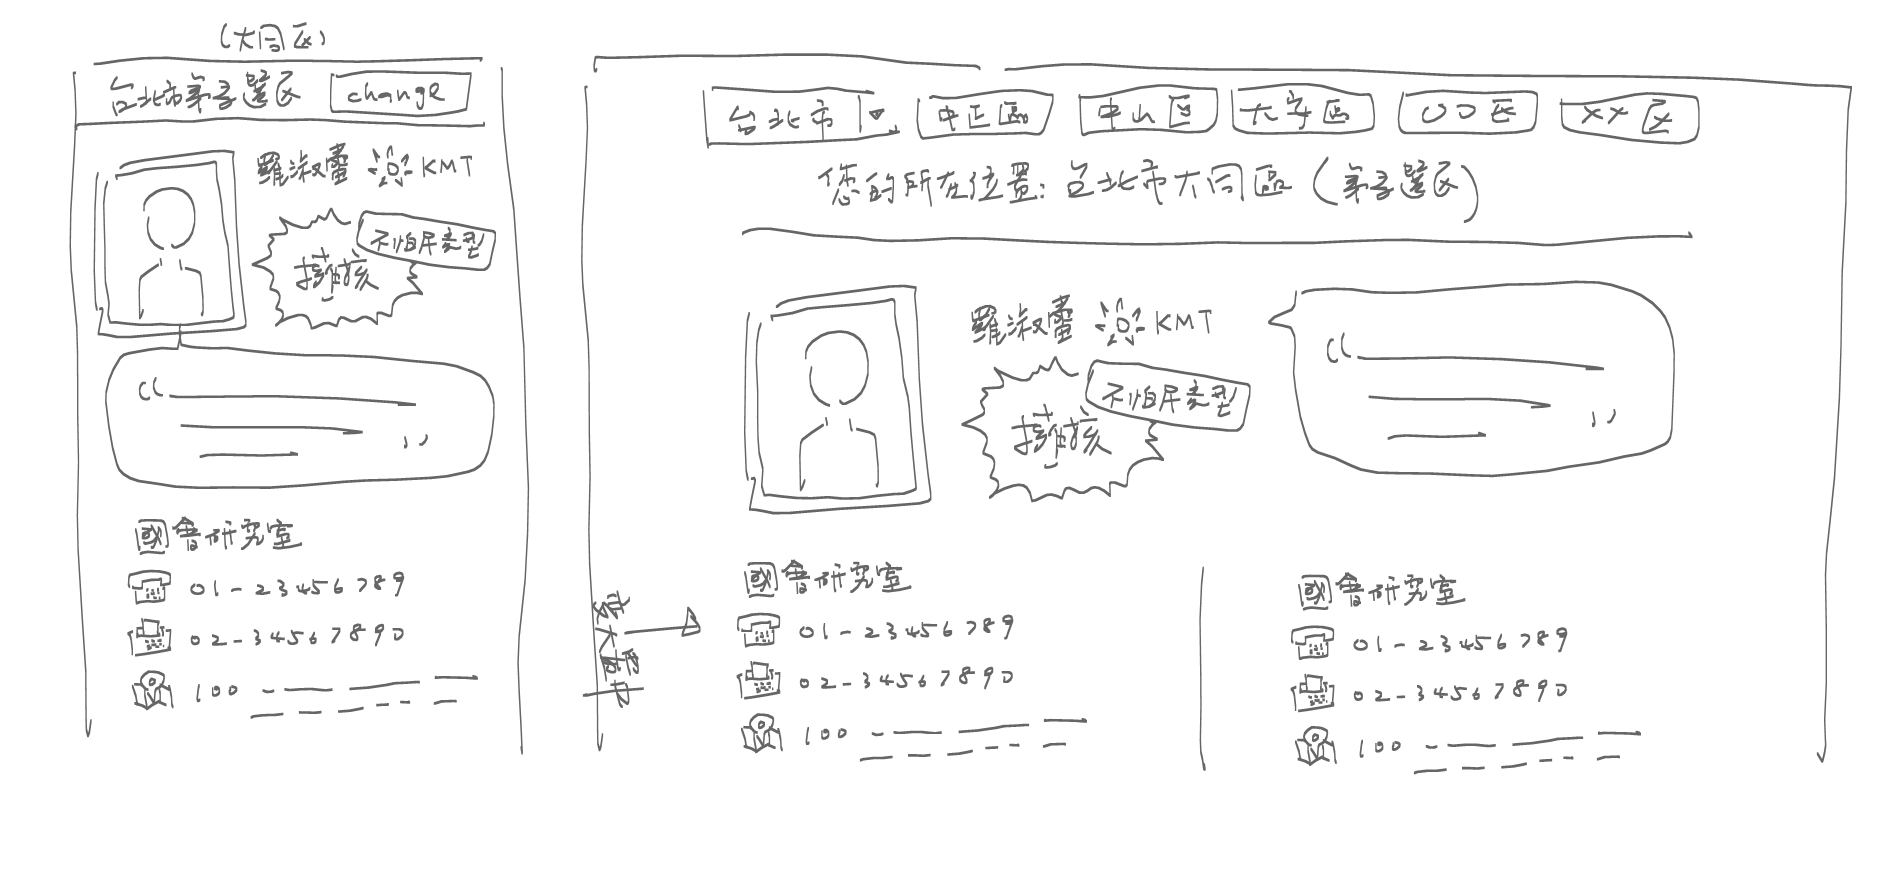 (大同区)
台北市第3選区 change
羅淑蕾 KMT
不怕尿素型
擁核
國會研究室
01-23456789
02-34567890
100
台北市 中正區 中山区 大安區 〇〇区 XX区
您的所在位置:台北市大同區(第3選区)
羅淑蕾 KMT
不怕尿素型
擁核
變大置中
國會研究室
01-23456789
02-34567890
100
國會研究室
01-23456789
02-34567890
100